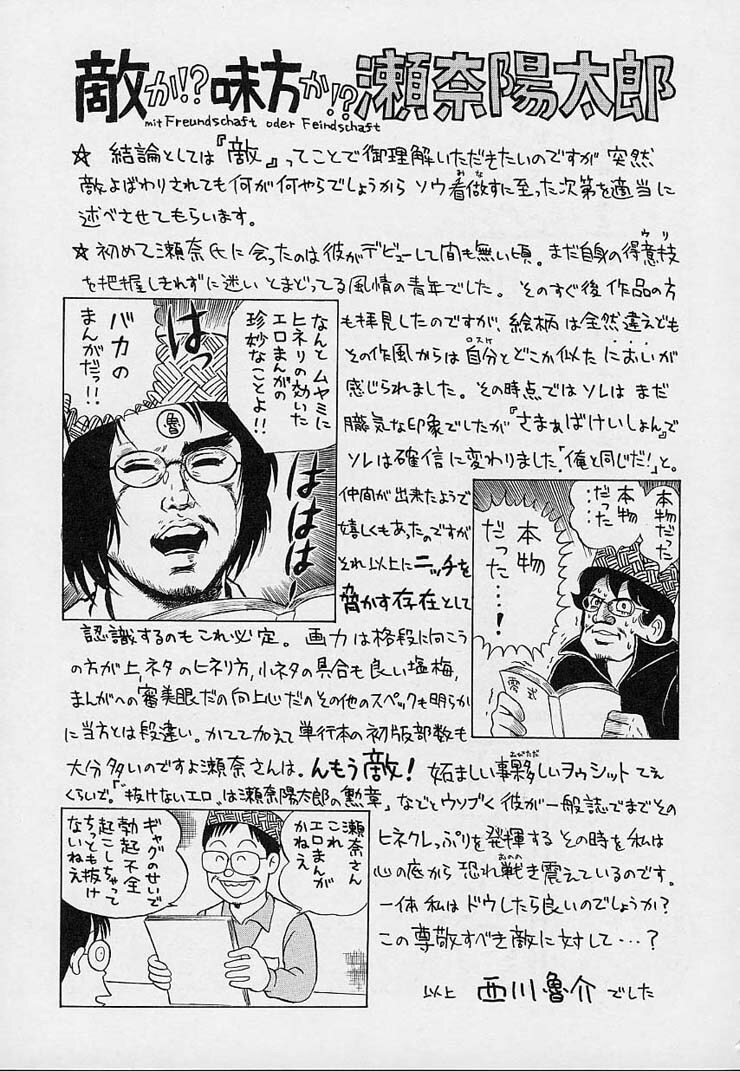 敵か!?味方か!?瀬奈陽太郎
mit Freundschaft oder Feindschaft
☆ 結論としては『敵』ってことで御理解いただきたいのですが 突然
敵よばわりされても何が何やらでしょうから ソウ看做すに至った次第を適当に
述べさせてもらいます。
☆ 初めて瀬奈氏に会ったのは彼がデビューして間も無い頃。まだ自身の得意技
を把握しきれずに迷い とまどってる風情の青年でした。そのすぐ後 作品の方
も拝見したのですが、絵柄は全然違えども
その作風からは自分とどこか似た においが
感じられました。その時点ではソレは まだ
朧気な印象でしたが『さまぁばけいしょん』で
ソレは確信に変わりました「俺と同じだ!」と。
仲間が出来たようで
嬉しくもあったのですが
それ以上にニッチを
脅かす存在として
認識するのもこれ必定。画力は格段に向こう
の方が上、ネタのヒネリ方、小ネタの具合も良い塩梅、
まんがへの審美眼だの向上心だのその他のスペックも明らか
に当方とは段違い。かてて加えて単行本の初版部数も
大分多いのですよ瀬奈さんは。んもう敵! 妬ましい事夥しいヲゥシットてえ
くらいで。「"抜けないエロ"は瀬奈陽太郎の勲章」などとウソブく彼が一般誌でまでその
ヒネクレっぷりを発揮する その時を私は
心の底から恐れ戦き震えているのです。
一体 私はドウしたら良いのでしょうか?
この尊敬すべき敵に対して…?
以上 西川魯介 でした
なんと ムヤミに
ヒネリの効いた
エロまんがの
珍妙なことよ!!
はっ
バカの
まんがだっ!!
ははは
魯
本物だった
…
本物
だった
…
本物
だった
…!
瀬奈さん
これ
エロまんが
かねえ
ギャグのせいで
勃起不全
起こしちゃって
ちっとも抜け
ないねえ